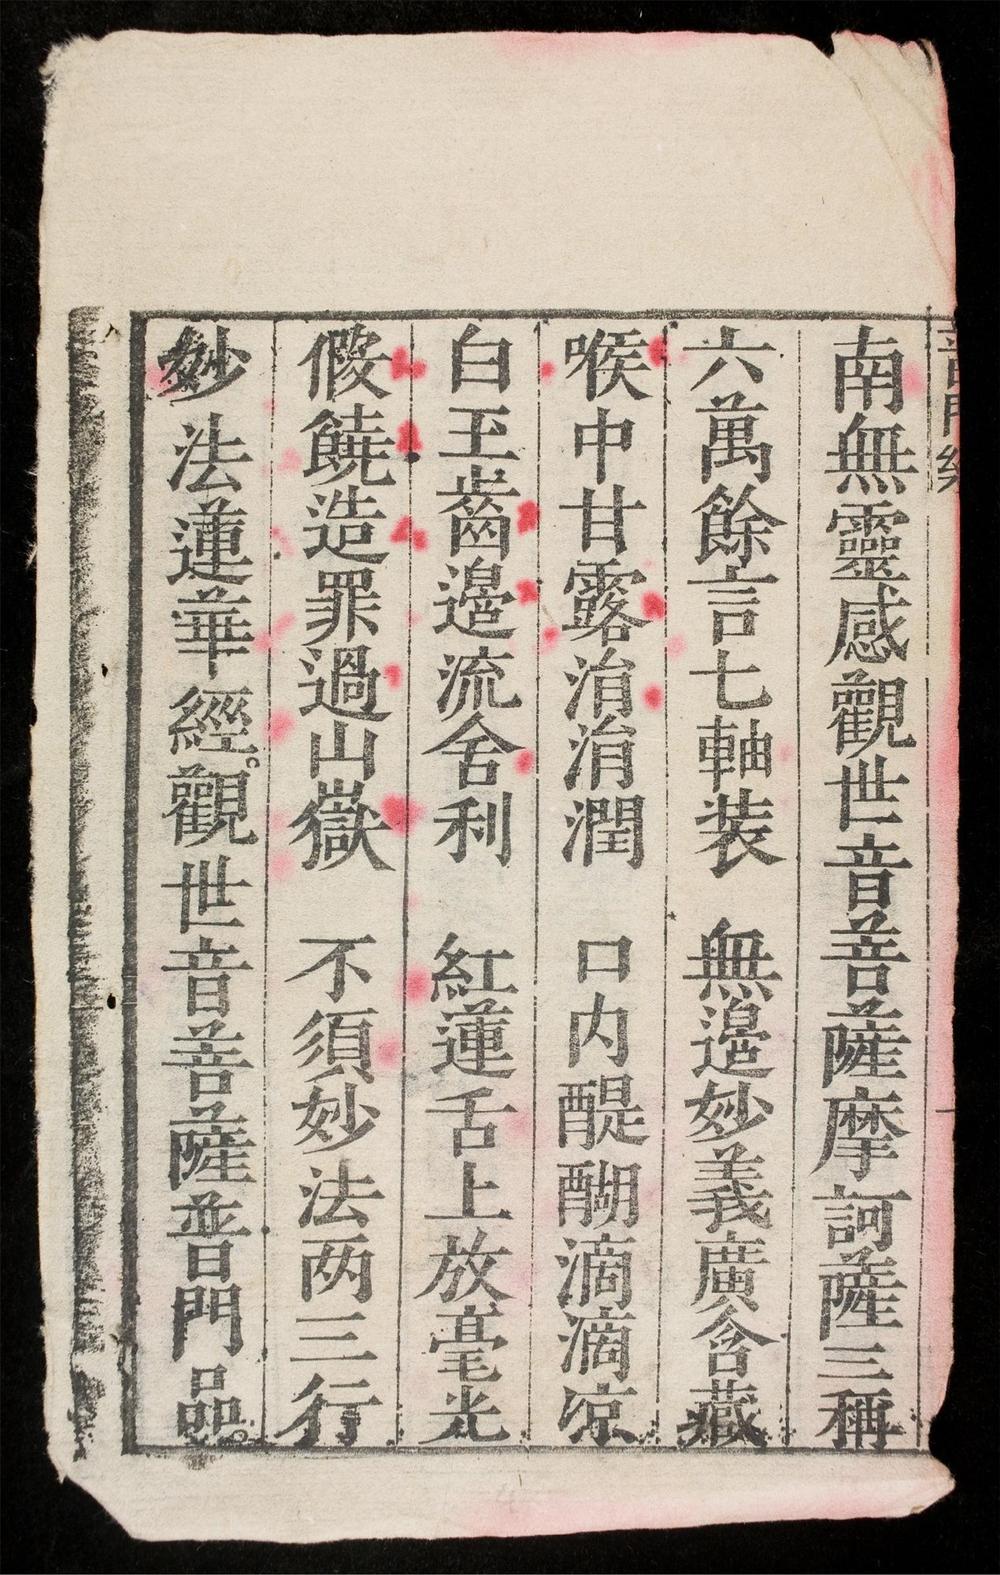 普門經
一
南無靈感觀世音菩薩摩訶薩三稱
六萬餘言七軸装　無邊妙義廣含藏
喉中甘露涓涓潤　口内醍醐滴滴凉
白玉齒邊流舍利　紅蓮舌上放毫光
假饒造罪過山嶽　不須妙法两三行
妙法蓮華經觀世音菩薩普門品